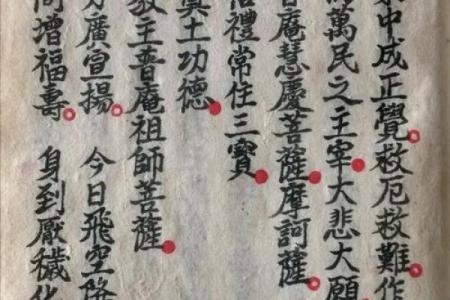 中成正覺救厄救難作
萬民之主宰大悲大願
普庵慧慶菩薩摩訶薩
禮常任三寶
土功德
教主普庵祖師菩薩
廣宣揚 今日飛空降
增福壽 身到厭穢化